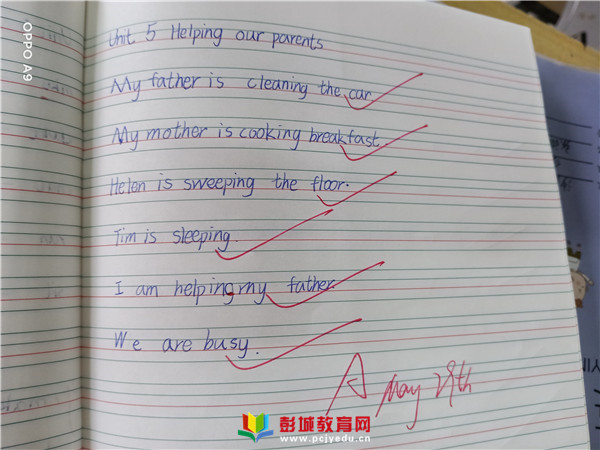 OPPO A9
Unit 5 Helping our parents
My father is cleaning the car
My mother is cooking breakfast.
Helen is sweeping the floor.
Tim is sleeping.
I am helping my father.
We are busy.
A May 29th
彭城教育网
www.pcjyedu.cn